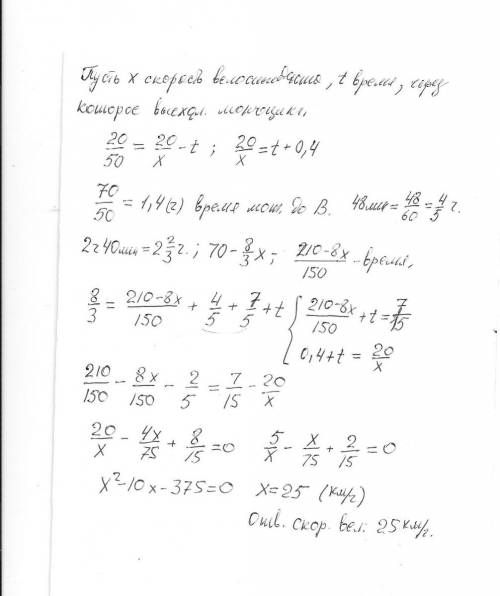 Пусть x скорость велосипедиста, t время, через
которое выехал мотоцикл.
20/50 = 20/x - t ; 20/x = t + 0,4
70/50 = 1,4(ч) время мот. до В. 48мин = 48/60 = 4/5 ч.
2ч 40мин = 2 2/3 ч. ; 70 - 8/3 x ; (210-8x)/150 - время,
8/3 = (210-8x)/150 + 4/5 + 7/5 + t { (210-8x)/150 + t = 7/15
0,4 + t = 20/x
210/150 - 8x/150 - 2/5 = 7/15 - 20/x
20/x - 4x/75 + 8/15 = 0 5/x - x/75 + 2/15 = 0
x² - 10x - 375 = 0 x = 25 (км/ч)
Отв. скор. вел. 25 км/ч.